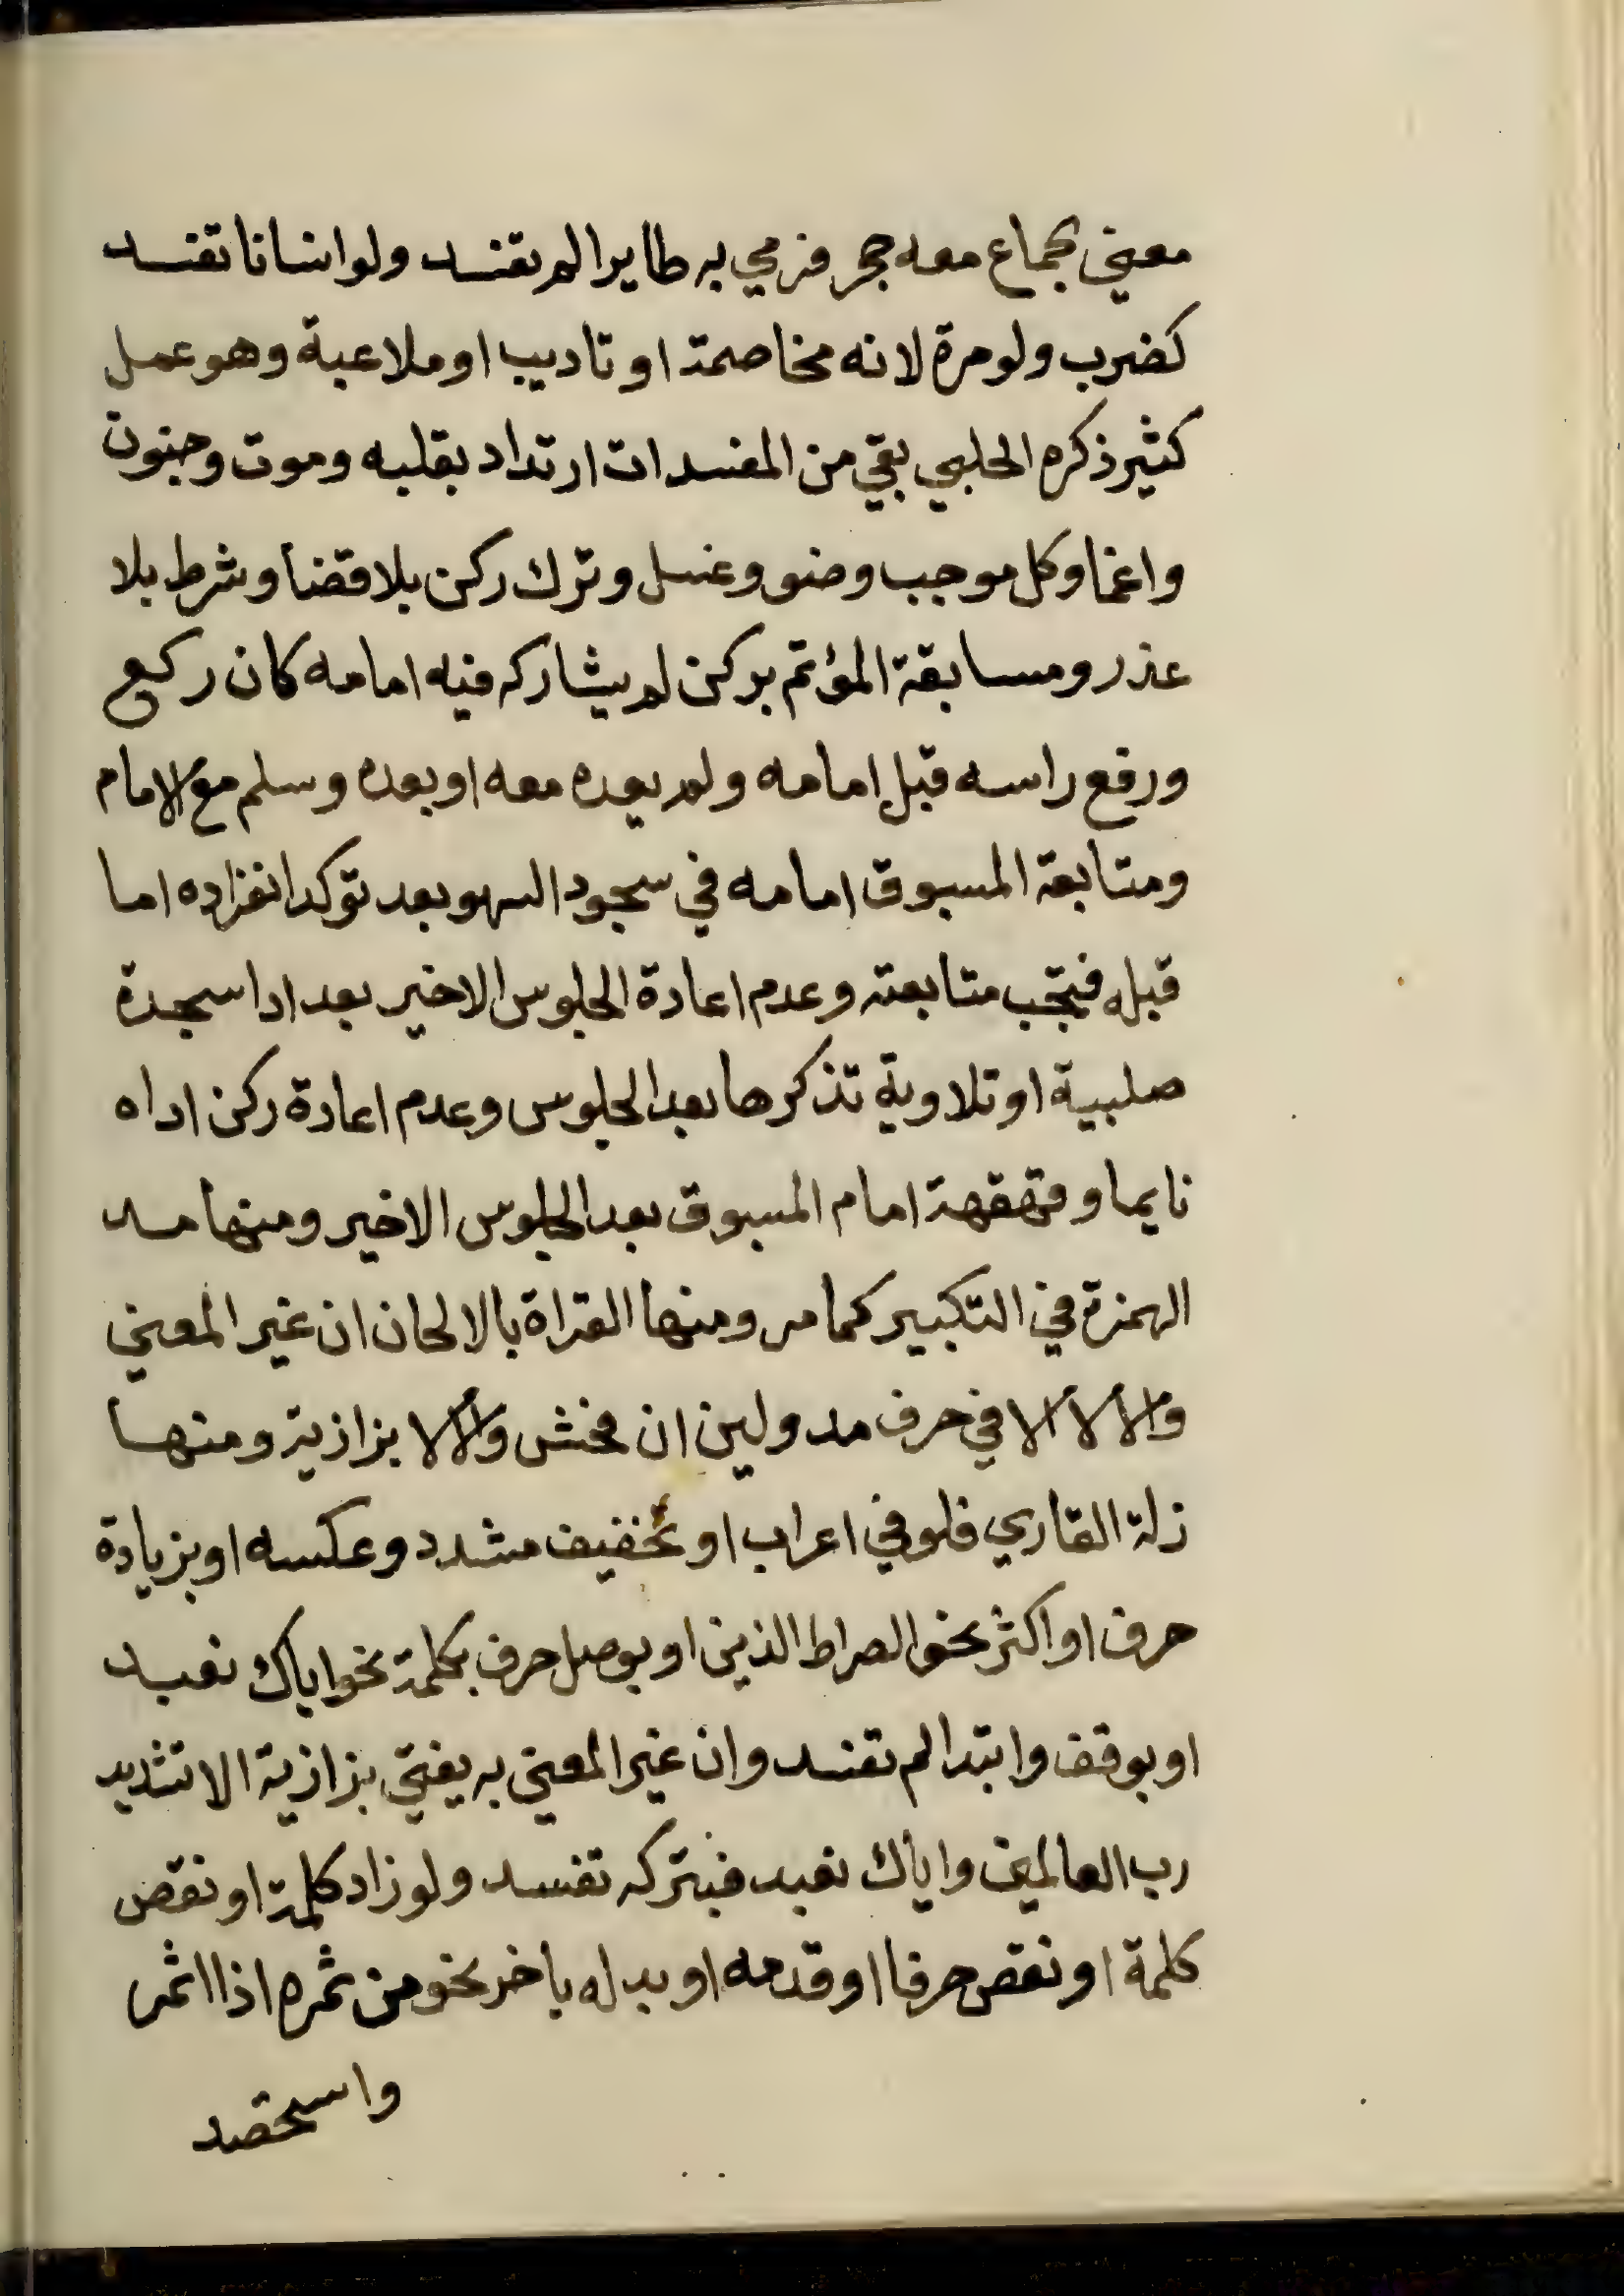 معني بجماع معه حجر فرمي به طايرا لم تفسد ولو انسانا تفسد
كضرب ولو مرة لانه مخاصمة او تاديب او ملاعبة وهو عمل
كثير ذكره الحلبي بقي من المفسدات ارتداد بقلبه وموت وجنون
واغما وكل موجب وضو وغسل وترك ركن بلا قضأ وشرط بلا
عذر ومسابقة المؤتم بركن لم يشاركه فيه امامه كان ركع
ورفع راسه قبل امامه ولم يعده معه او بعده وسلم مع الامام
ومتابعة المسبوق امامه في سجود السهو بعد توكد انفراده اما
قبله فتجب متابعته وعدم اعادة الجلوس الاخير بعد ادا سجدة
صلبية او تلاوية تذكرها بعد الجلوس وعدم اعادة ركن اداه
نايما وقهقهة امام المسبوق بعد الجلوس الاخير ومنها مد
الهمزة في التكبير كما مر ومنها القراة بالالحان ان غير المعني
والا لا الا في حرف مد ولين ان فحش والا لا بزازية ومنها
زلة القاري فلو في اعراب او تخفيف مشدد وعكسه او بزيادة
حرف او اكثر نحو الصراط الذين او بوصل حرف بكلمة نحو اياك نعبد
او بوقف وابتدا لم تفسد وان غير المعني به يفتي بزازية الا تشديد
رب العالمين واياك نعبد فبتركه تفسد ولو زاد كلمة او نقص
كلمة او نقص حرفا او قدمه او بدله باخر نحو من ثمره اذا اثمر
واستحصد